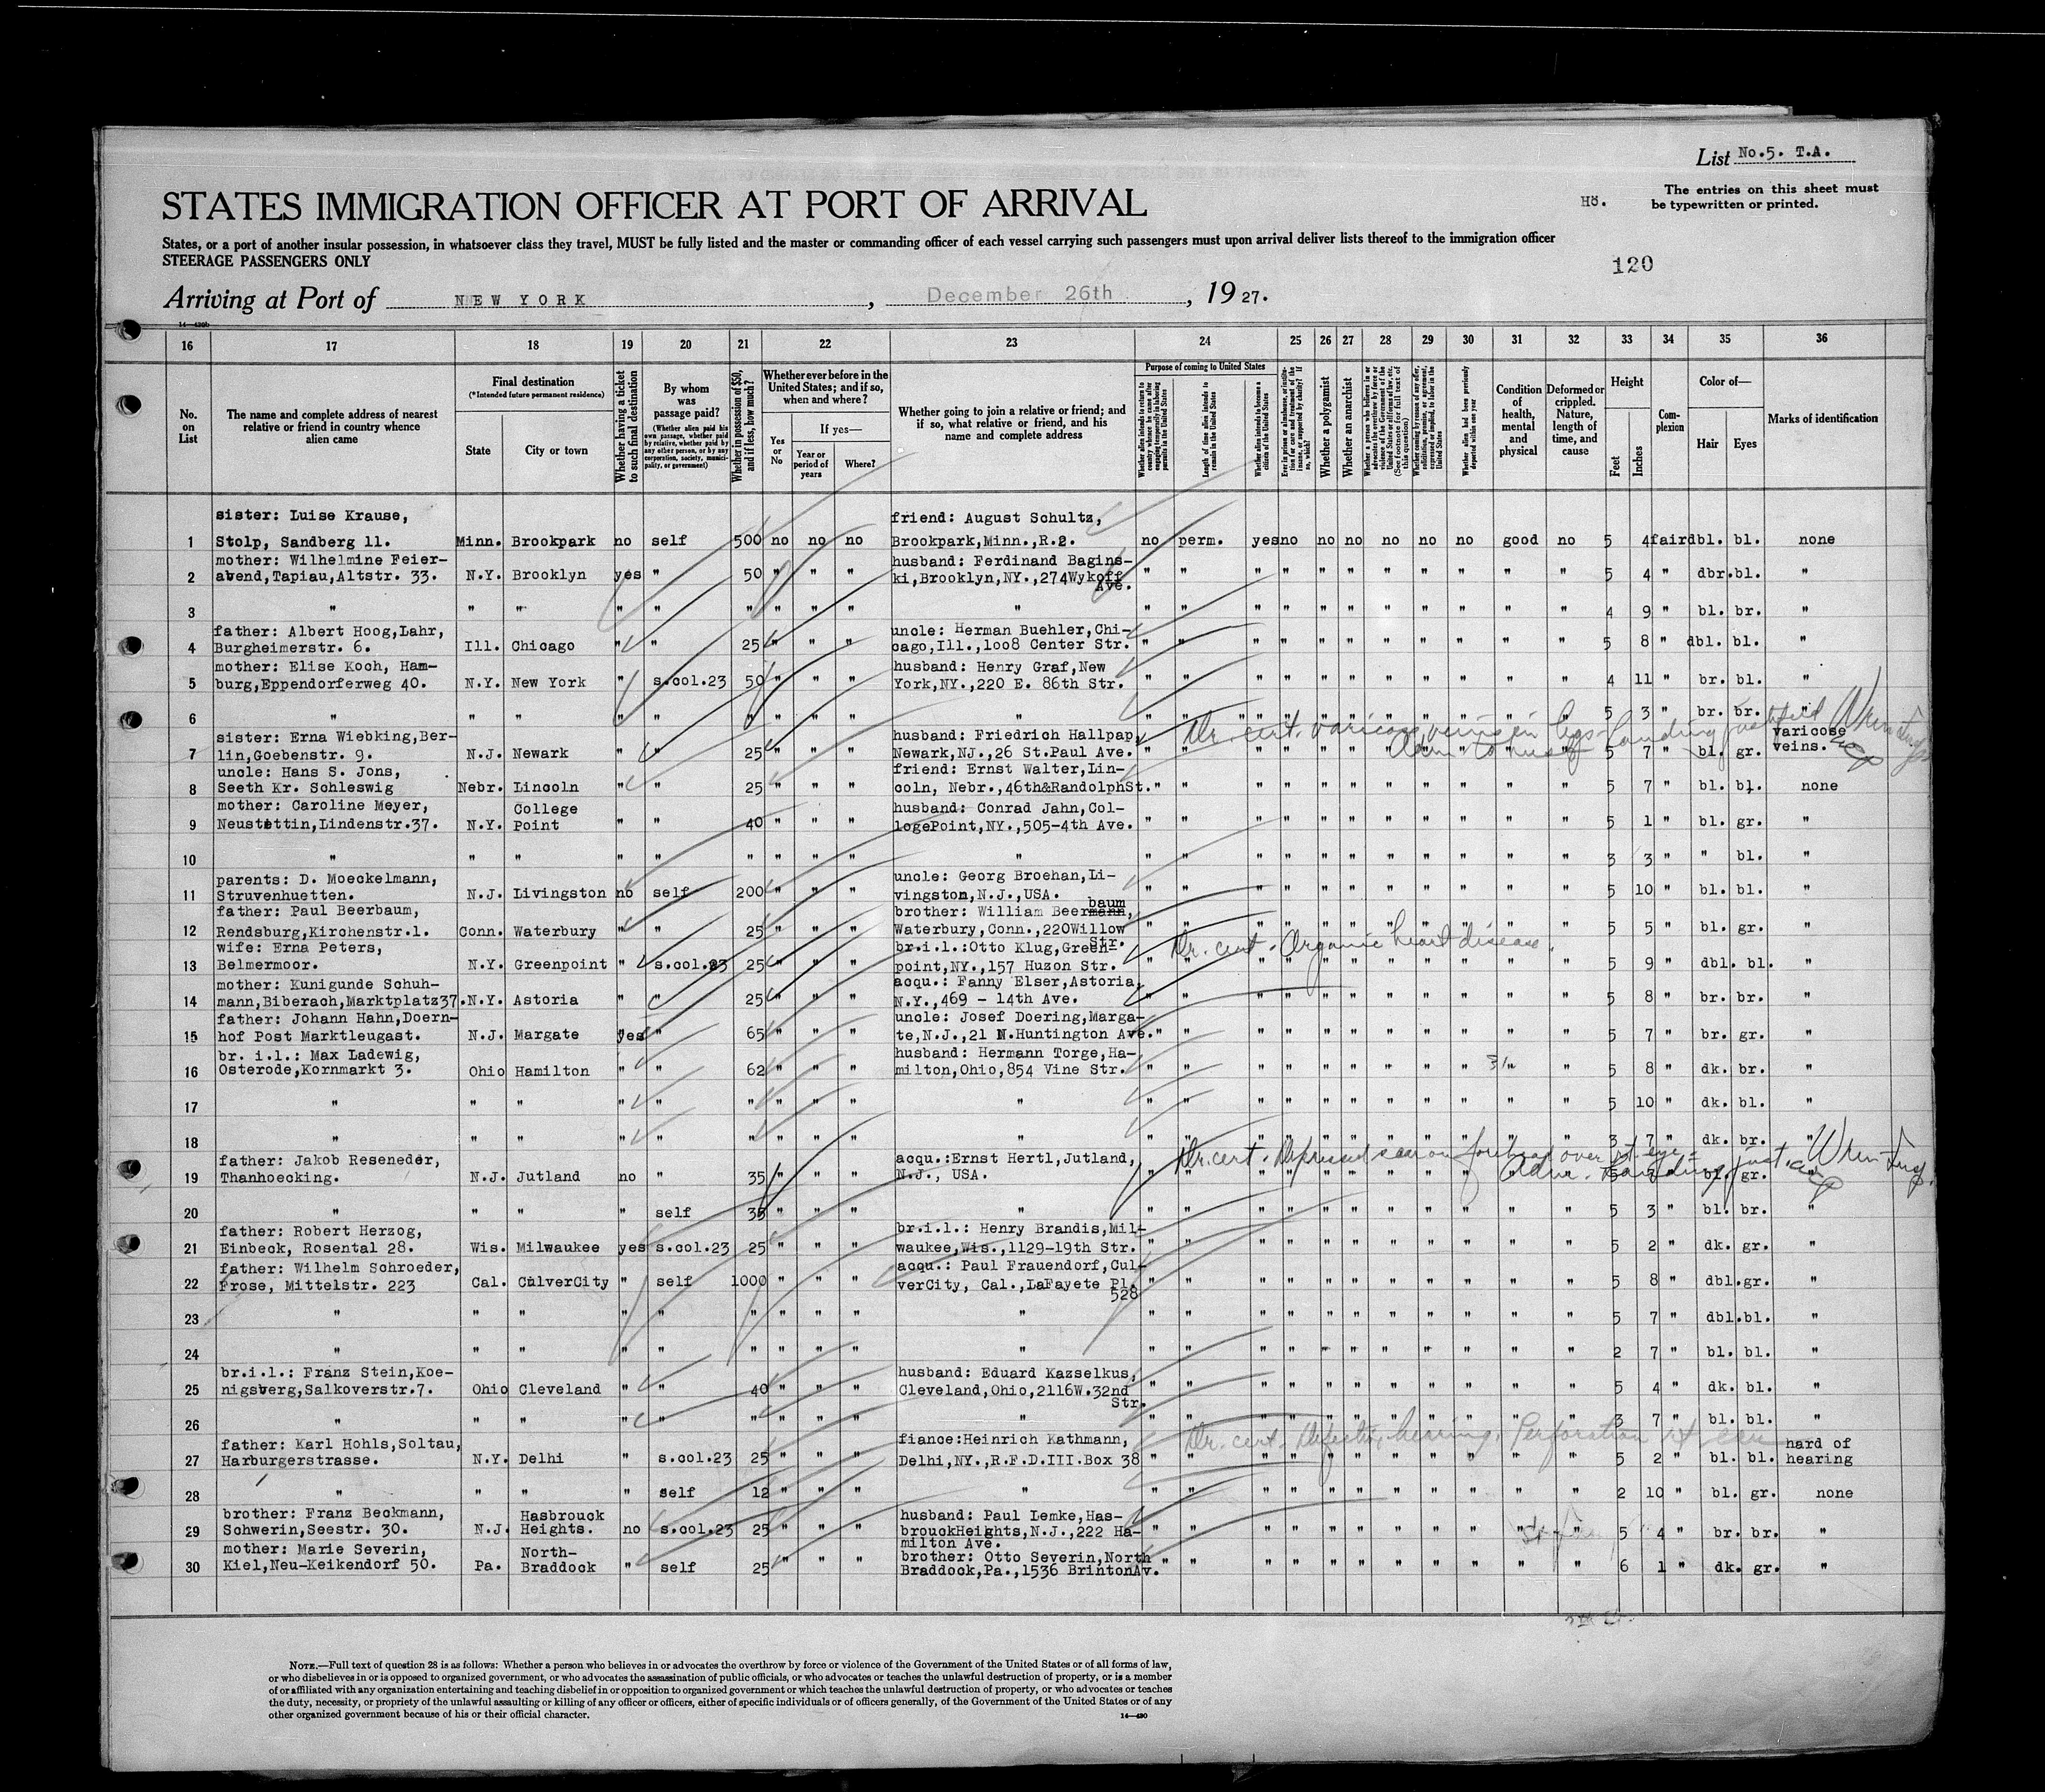 List No.5. T.A.
STATES IMMIGRATION OFFICER AT PORT OF ARRIVAL
H8.
The entries on this sheet must
be typewritten or printed.
States, or a port of another insular possession, in whatsoever class they travel, MUST be fully listed and the master or commanding officer of each vessel carrying such passengers must upon arrival deliver lists thereof to the immigration officer
STEERAGE PASSENGERS ONLY
120
Arriving at Port of NEW YORK, December 26th, 1927.
14—430b
16 17 18 19 20 21 22 23 24 25 26 27 28 29 30 31 32 33 34 35 36
No. on List
The name and complete address of nearest relative or friend in country whence alien came
Final destination
(*Intended future permanent residence)
State
City or town
Whether having a ticket to such final destination
By whom was passage paid?
(Whether alien paid his own passage, whether paid by relative, whether paid by any other person, or by any corporation, society, municipality, or government)
Whether in possession of $50, and if less, how much?
Whether ever before in the United States; and if so, when and where?
Yes or No
If yes—
Year or period of years
Where?
Whether going to join a relative or friend; and if so, what relative or friend, and his name and complete address
Purpose of coming to United States
Whether alien intends to return to country whence he came after engaging temporarily in laboring pursuits in the United States
Length of time alien intends to remain in the United States
Whether alien intends to become a citizen of the United States
Ever in prison or almshouse, or institution for care and treatment of the insane, or supported by charity? If so, which?
Whether a polygamist
Whether an anarchist
Whether a person who believes in or advocates the overthrow by force or violence of the Government of the United States or all forms of law, etc. (See footnote for full text of this question)
Whether coming by reason of any offer, solicitation, promise, or agreement, expressed or implied, to labor in the United States
Whether alien had been previously deported within one year
Condition of health, mental and physical
Deformed or crippled. Nature, length of time, and cause
Height
Feet
Inches
Complexion
Color of—
Hair
Eyes
Marks of identification
sister: Luise Krause, friend: August Schultz,
1 Stolp, Sandberg 11. Minn. Brookpark no self 500 no no no Brookpark,Minn.,R.2. no perm. yes no no no no no no good no 5 4 fair dbl. bl. none
mother: Wilhelmine Feier- husband: Ferdinand Bagins-
2 abend,Tapiau,Altstr. 33. N.Y. Brooklyn yes " 50 " " " ki,Brooklyn,NY.,274Wykoff " " " " " " " " " " " 5 4 " dbr. bl. "
Ave.
3 " " " " " " " " " " " " " " " " " " " " " 4 9 " bl. br. "
father: Albert Hoog,Lahr, uncle: Herman Buehler,Chi-
4 Burgheimerstr. 6. Ill. Chicago " " 25 " " " cago,Ill.,1008 Center Str. " " " " " " " " " " " 5 8 " dbl. bl. "
mother: Elise Koch, Ham- husband: Henry Graf,New
5 burg,Eppendorferweg 40. N.Y. New York " s.col.23 50 " " " York,NY.,220 E. 86th Str. " " " " " " " " " " " 4 11 " br. bl. "
6 " " " " " " " " " " " " " " " " " " " " " 5 3 " br. br. "
Dr. cert. varicose veins in legs landing justified
sister: Erna Wiebking,Ber- husband: Friedrich Hallpap, varicose
7 lin,Goebenstr. 9. N.J. Newark " " 25 " " " Newark,NJ.,26 St.Paul Ave. " " " " " " " " " " " 5 7 " bl. gr. veins.
uncle: Hans S. Jons, friend: Ernst Walter,Lin-
8 Seeth Kr. Schleswig Nebr. Lincoln " " 25 " " " coln, Nebr.,46th&RandolphSt. " " " " " " " " " " " 5 7 " bl. bl. none
mother: Caroline Meyer, College husband: Conrad Jahn,Col-
9 Neustettin,Lindenstr.37. N.Y. Point " " 40 " " " logePoint,NY.,505-4th Ave. " " " " " " " " " " " 5 1 " bl. gr. "
10 " " " " " " " " " " " " " " " " " " " " " 3 3 " " bl. "
parents: D. Moeckelmann, uncle: Georg Broehan,Li-
11 Struvenhuetten. N.J. Livingston no self 200 " " " vingston,N.J.,USA. " " " " " " " " " " " 5 10 " bl. bl. "
father: Paul Beerbaum, brother: William Beermann, baum
12 Rendsburg,Kirchenstr.1. Conn. Waterbury " " 25 " " " Waterbury,Conn.,220Willow " " " " " " " " " " " 5 5 " bl. gr. "
Str.
Dr. cert. Organic heart disease.
wife: Erna Peters, br.i.l.:Otto Klug,Green-
13 Belmermoor. N.Y. Greenpoint " s.col.23 25 " " " point,NY.,157 Huzon Str. " " " " " " " " " " " 5 9 " dbl. bl. "
mother: Kunigunde Schuh- acqu.: Fanny Elser,Astoria,
14 mann,Biberach,Marktplatz37. N.Y. Astoria " " 25 " " " N.Y.,469 - 14th Ave. " " " " " " " " " " " 5 8 " br. br. "
father: Johann Hahn,Doern- uncle: Josef Doering,Marga-
15 hof Post Marktleugast. N.J. Margate yes " 65 " " " te,N.J.,21 N.Huntington Ave. " " " " " " " " " " " 5 7 " br. gr. "
br. i.l.: Max Ladewig, husband: Hermann Torge,Ha-
16 Osterode,Kornmarkt 3. Ohio Hamilton " " 62 " " " milton,Ohio,854 Vine Str. " " " " " " " " " " 5 8 " dk. br. "
17 " " " " " " " " " " " " " " " " " " " " " 5 10 " dk. bl. "
18 " " " " " " " " " " " " " " " " " " " " " 3 7 " dk. br. "
Dr. cert. Depressed scar on forehead over rt. eye
father: Jakob Reseneder, acqu.:Ernst Hertl,Jutland,
19 Thanhoecking. N.J. Jutland no " 35 " " " N.J., USA. " " " " " " " " " 5 bl. gr.
20 " " " " self 35 " " " " " " " " " " " " " " " 5 3 " bl. br. "
father: Robert Herzog, br.i.l.: Henry Brandis,Mil-
21 Einbeck, Rosental 28. Wis. Milwaukee yes s.col.23 25 " " " waukee,Wis.,1129-19th Str. " " " " " " " " " " " 5 2 " dk. gr. "
father: Wilhelm Schroeder, acqu.: Paul Frauendorf,Cul-
22 Frose, Mittelstr. 223 Cal. CulverCity " self 1000 " " " verCity, Cal.,LaFayete Pl. " " " " " " " " " " " 5 8 " dbl. gr. "
528
23 " " " " " " " " " " " " " " " " " " " " " 5 7 " dbl. bl. "
24 " " " " " " " " " " " " " " " " " " " " " 2 7 " bl. bl. "
br.i.l.: Franz Stein,Koe- husband: Eduard Kazselkus,
25 nigsberg,Salkoverstr.7. Ohio Cleveland " " 40 " " " Cleveland,Ohio,2116W.32nd " " " " " " " " " " " 5 4 " dk. bl. "
Str.
26 " " " " " " " " " " " " " " " " " " " " " 3 7 " bl. bl. "
Dr. cert. Defective hearing. Perforation rt ear
father: Karl Hohls,Soltau, fiance:Heinrich Kathmann, hard of
27 Harburgerstrasse. N.Y. Delhi " s.col.23 25 " " " Delhi,NY.,R.F.D.III.Box 38 " " " " " " " " " " " 5 2 " bl. bl. hearing
28 " " " " self 12 " " " " " " " " " " " " " " " 2 10 " bl. gr. none
brother: Franz Beckmann, Hasbrouck husband: Paul Lemke,Has-
29 Schwerin,Seestr. 30. N.J. Heights. no s.col.23 25 " " " brouckHeights,N.J.,222 Ha- " " " " " " " " " " " 5 4 " br. br. "
milton Ave.
mother: Marie Severin, North- brother: Otto Severin,North
30 Kiel,Neu-Keikendorf 50. Pa. Braddock " self 25 " " " Braddock,Pa.,1536 BrintonAv. " " " " " " " " " " " 6 1 " dk. gr. "
NOTE.—Full text of question 28 is as follows: Whether a person who believes in or advocates the overthrow by force or violence of the Government of the United States or of all forms of law,
or who disbelieves in or is opposed to organized government, or who advocates the assassination of public officials, or who advocates or teaches the unlawful destruction of property, or is a member
of or affiliated with any organization entertaining and teaching disbelief in or opposition to organized government or which teaches the unlawful destruction of property, or who advocates or teaches
the duty, necessity, or propriety of the unlawful assaulting or killing of any officer or officers, either of specific individuals or of officers generally, of the Government of the United States or of any
other organized government because of his or their official character.
14—430